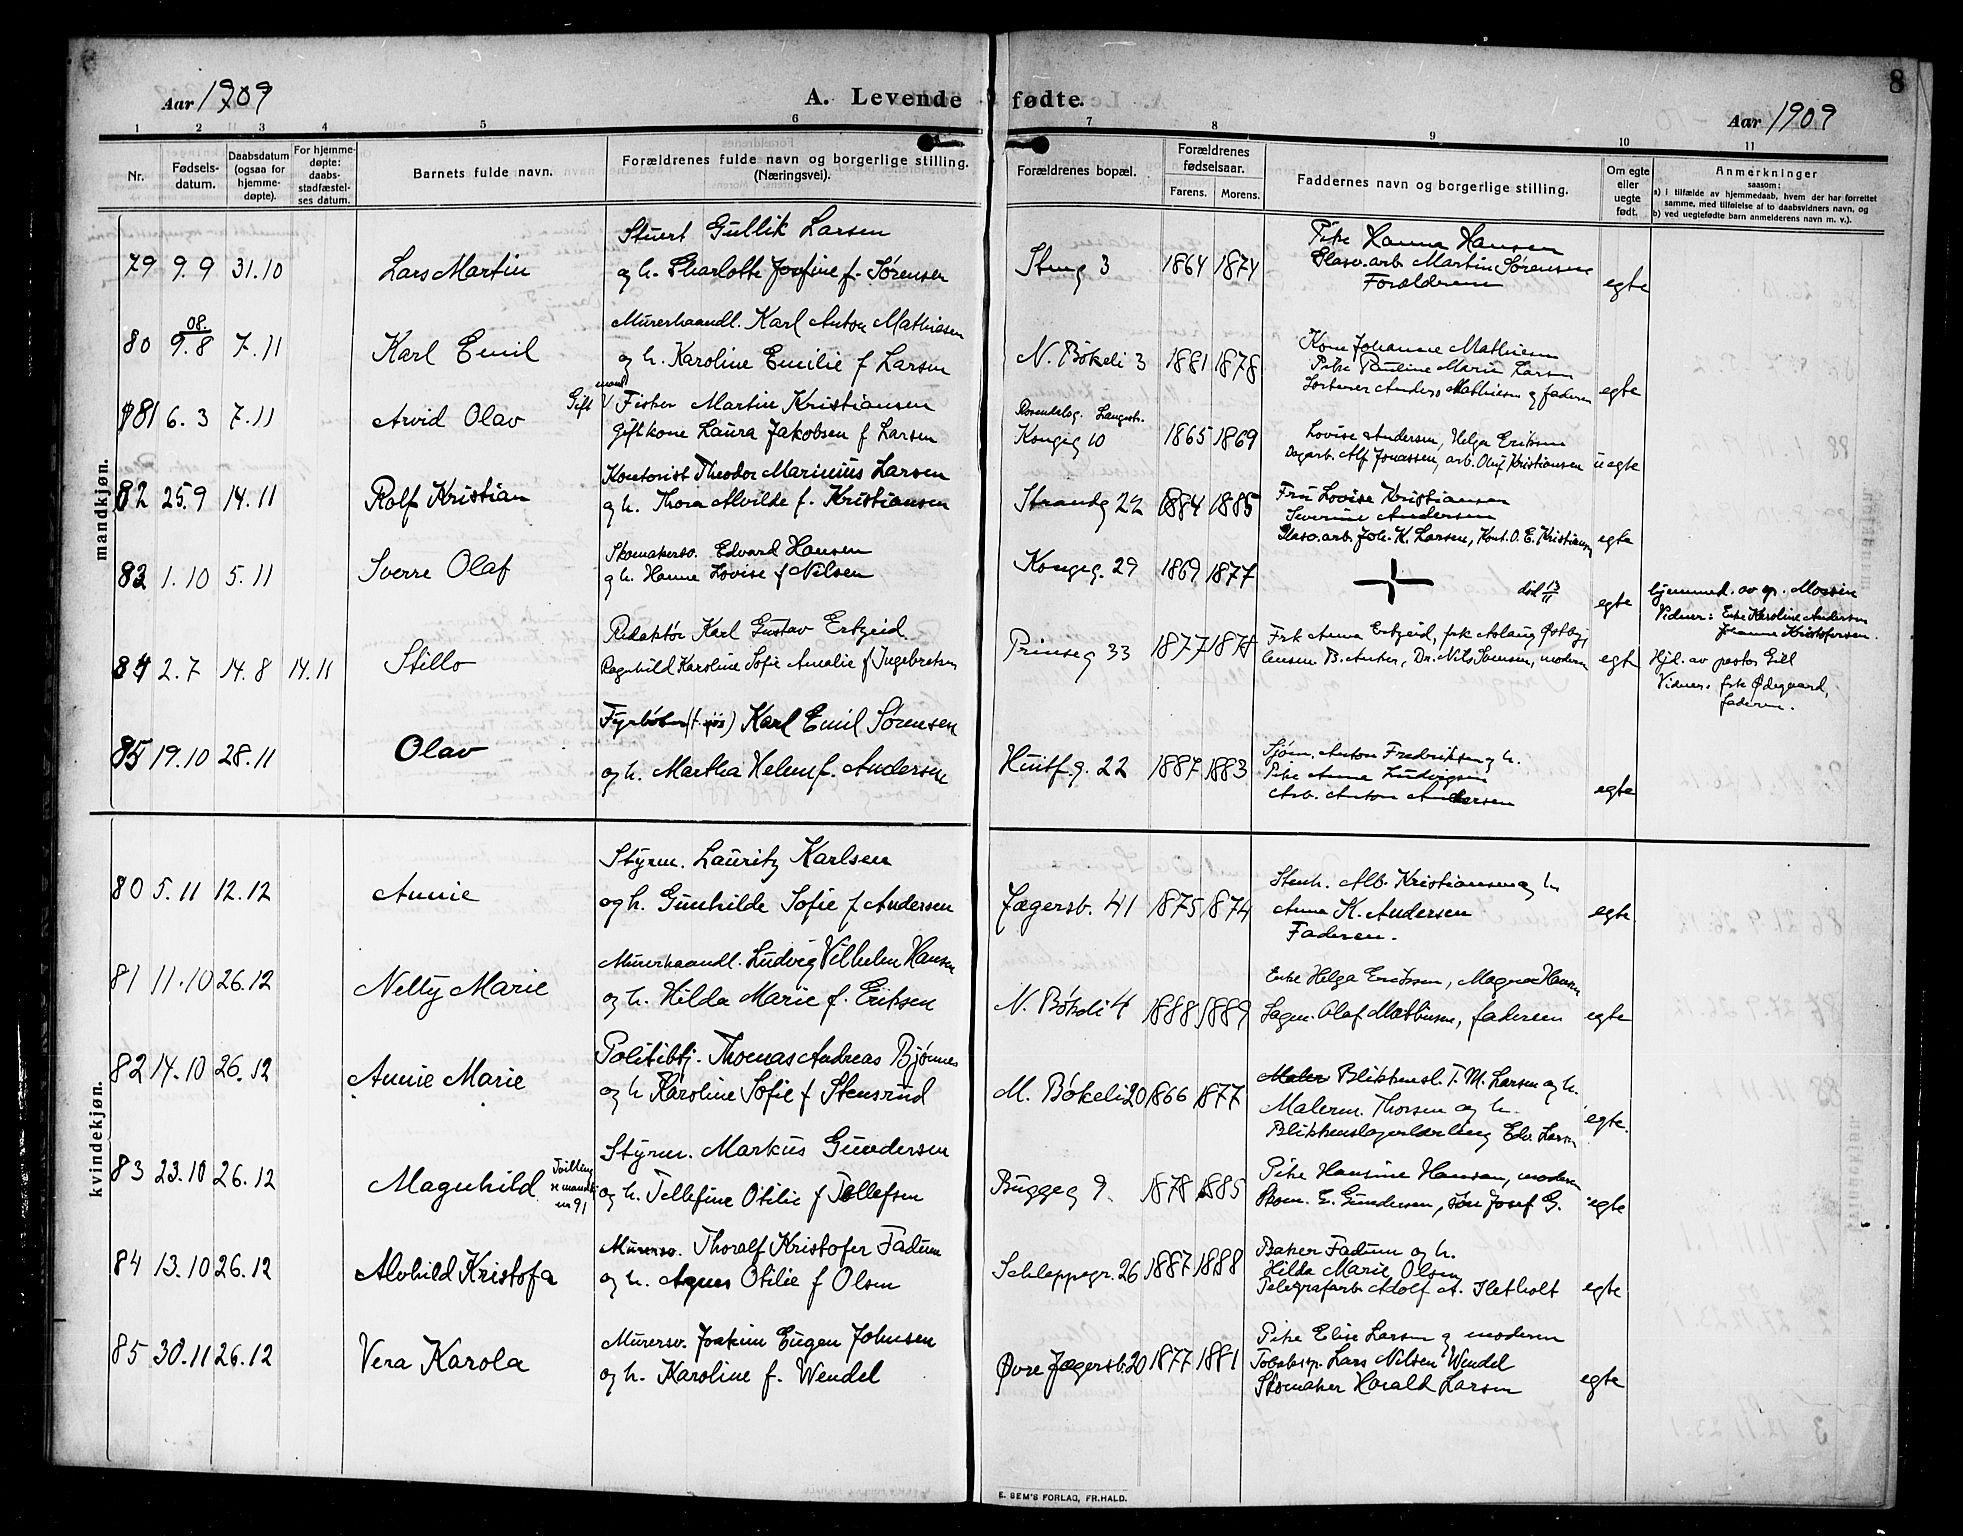 Aar 1909
A. Levende fødte.
Aar 1909
8
1 2 3 4 5 6 7 8 9 10 11
Nr.
Fødsels-
datum.
Daabsdatum
(ogsaa for
hjemme-
døpte).
For hjemme-
døpte:
daabs-
stadfæstel-
ses datum.
Barnets fulde navn.
Forældrenes fulde navn og borgerlige stilling.
(Næringsvei).
Forældrenes bopæl.
Forældrenes
fødselsaar.
Farens. Morens.
Faddernes navn og borgerlige stilling.
Om egte
eller
uegte
født.
Anmerkninger
saasom:
a) i tilfælde av hjemmedaab, hvem der har forrettet
samme, med tilføielse af to daabsvidners navn, og
b) ved uegtefødte barn anmelderens navn m. v.).
mandkjøn.
79 9.9 31.10 Lars Martin
Stuert Gullik Larsen
og h. Charlotte Josefine f. Sørensen
Steng 3 1864 1874
Pike Hanna Hansen
Glasv.arb. Martin Sørensen
Forældrene
egte
80 08. 9.8 7.11 Karl Emil
Murerhaandl. Karl Anton Mathisen
og h. Karoline Emilie f Larsen
N. Bökeli 3 1881 1878
Kone Johanne Mathisen
Pike Pauline Marie Larsen
Anders Mathisen og faderen
egte
81 6.3 7.11 Arvid Olav
Gift mand
Fisker Martin Kristiansen
Gift kone Laura Jakobsen f Larsen
Langestr.
Kongeg 10 1865 1869
Lovise Andersen, Helga Eriksen
Dagarb. Alf Jonassen, arb. Oluf Kristiansen
uegte
82 25.9 14.11 Rolf Kristian
Kontorist Theodor Marinius Larsen
og h. Thora Alvilde f. Kristiansen
Strandg 22 1884 1885
Fru Lovise Kristiansen
Severine Andersen
Glasv.arb. Joh. K. Larsen, Kont. O. E. Kristiansen
egte
83 1.10 5.11 Sverre Olaf
Skomakersv. Edvard Hansen
og h. Hanne Lovise f Nilsen
Kongeg. 29 1869 1877
død 13/11
egte
hjemmed. av
Vidner: Enke Karoline Andersen
Johanne Kristofersen.
84 2.7 14.8 14.11
Redaktör Karl Gustav
Ragnhild Karoline Sofie Amalie f Ingebretsen
Prinseg 33 1877
Frk Anna
B. Anker, Dr. Nils Svensen, moderen
egte
Hjd. av pastor
Vidner: frk Ødegaard,
faderen.
85 19.10 28.11 Olav
Fyrböter Karl Emil Sørensen
og h. Martha Helene f. Andersen
Huitf.g. 22 1887 1883
Sjöm. Anton Fredriksen og h.
Pike Anna Ludvigsen
Arb. Anton Andersen
egte
kvindekjøn.
80 5.11 12.12 Annie
Styrm. Lauritz Karlsen
og h. Gunhilde Sofie f Andersen
Jægersb. 41 1875 1874
Stenh. Alb. Kristiansen og h
Anna K. Andersen
Faderen.
egte
81 11.10 26.12 Nelly Marie
Murerhaandl. Ludvig Vilhelm Hansen
og h. Hilda Marie f. Eriksen
N. Bökeli 4 1888 1889
Enke Helga Eriksen, Magna Hansen
Olaf Mathisen, faderen
egte
82 14.10 26.12 Annie Marie
Politibtj. Thomas Andreas Bjønnes
og h Karoline Sofie f Stensrud
M. Bökeli 20 1866 1877
Maler Blikkensl. T. M. Larsen og h.
Malerm. Thorsen og h.
Blikkenslagerlærling Edv. Larsen
egte.
83 23.10 26.12 Magnhild
Tvilling
m mandkj
nr 91
Styrm. Markus Gundersen
og h. Tellefine Otilie f Tellefsen
Buggeg 9. 1878 1885
Pike Hansine Hansen, moderen
E. Gundersen, Josef G.
egte
84 13.10 26.12 Alvhild Kristofa
Murersv. Thoralf Kristofer Fadum
og h. Agnes Otilie f Olsen
Schleppegr. 26 1887 1888
Baker Fadum og h.
Hilda Marie Olsen
Telegrafarb Adolf A. Hetholt
egte
85 30.11 26.12 Vera Karola
Murersv. Joakim Eugen Johnsen
og h. Karoline f. Wendel
Øvre Jægersb. 20 1877 1881
Pike Elise Larsen og moderen
Tobaksp. Lars Nilsen Wendel
Skomaker Harald Larsen
egte
E. SEM'S FORLAG, FR.HALD.